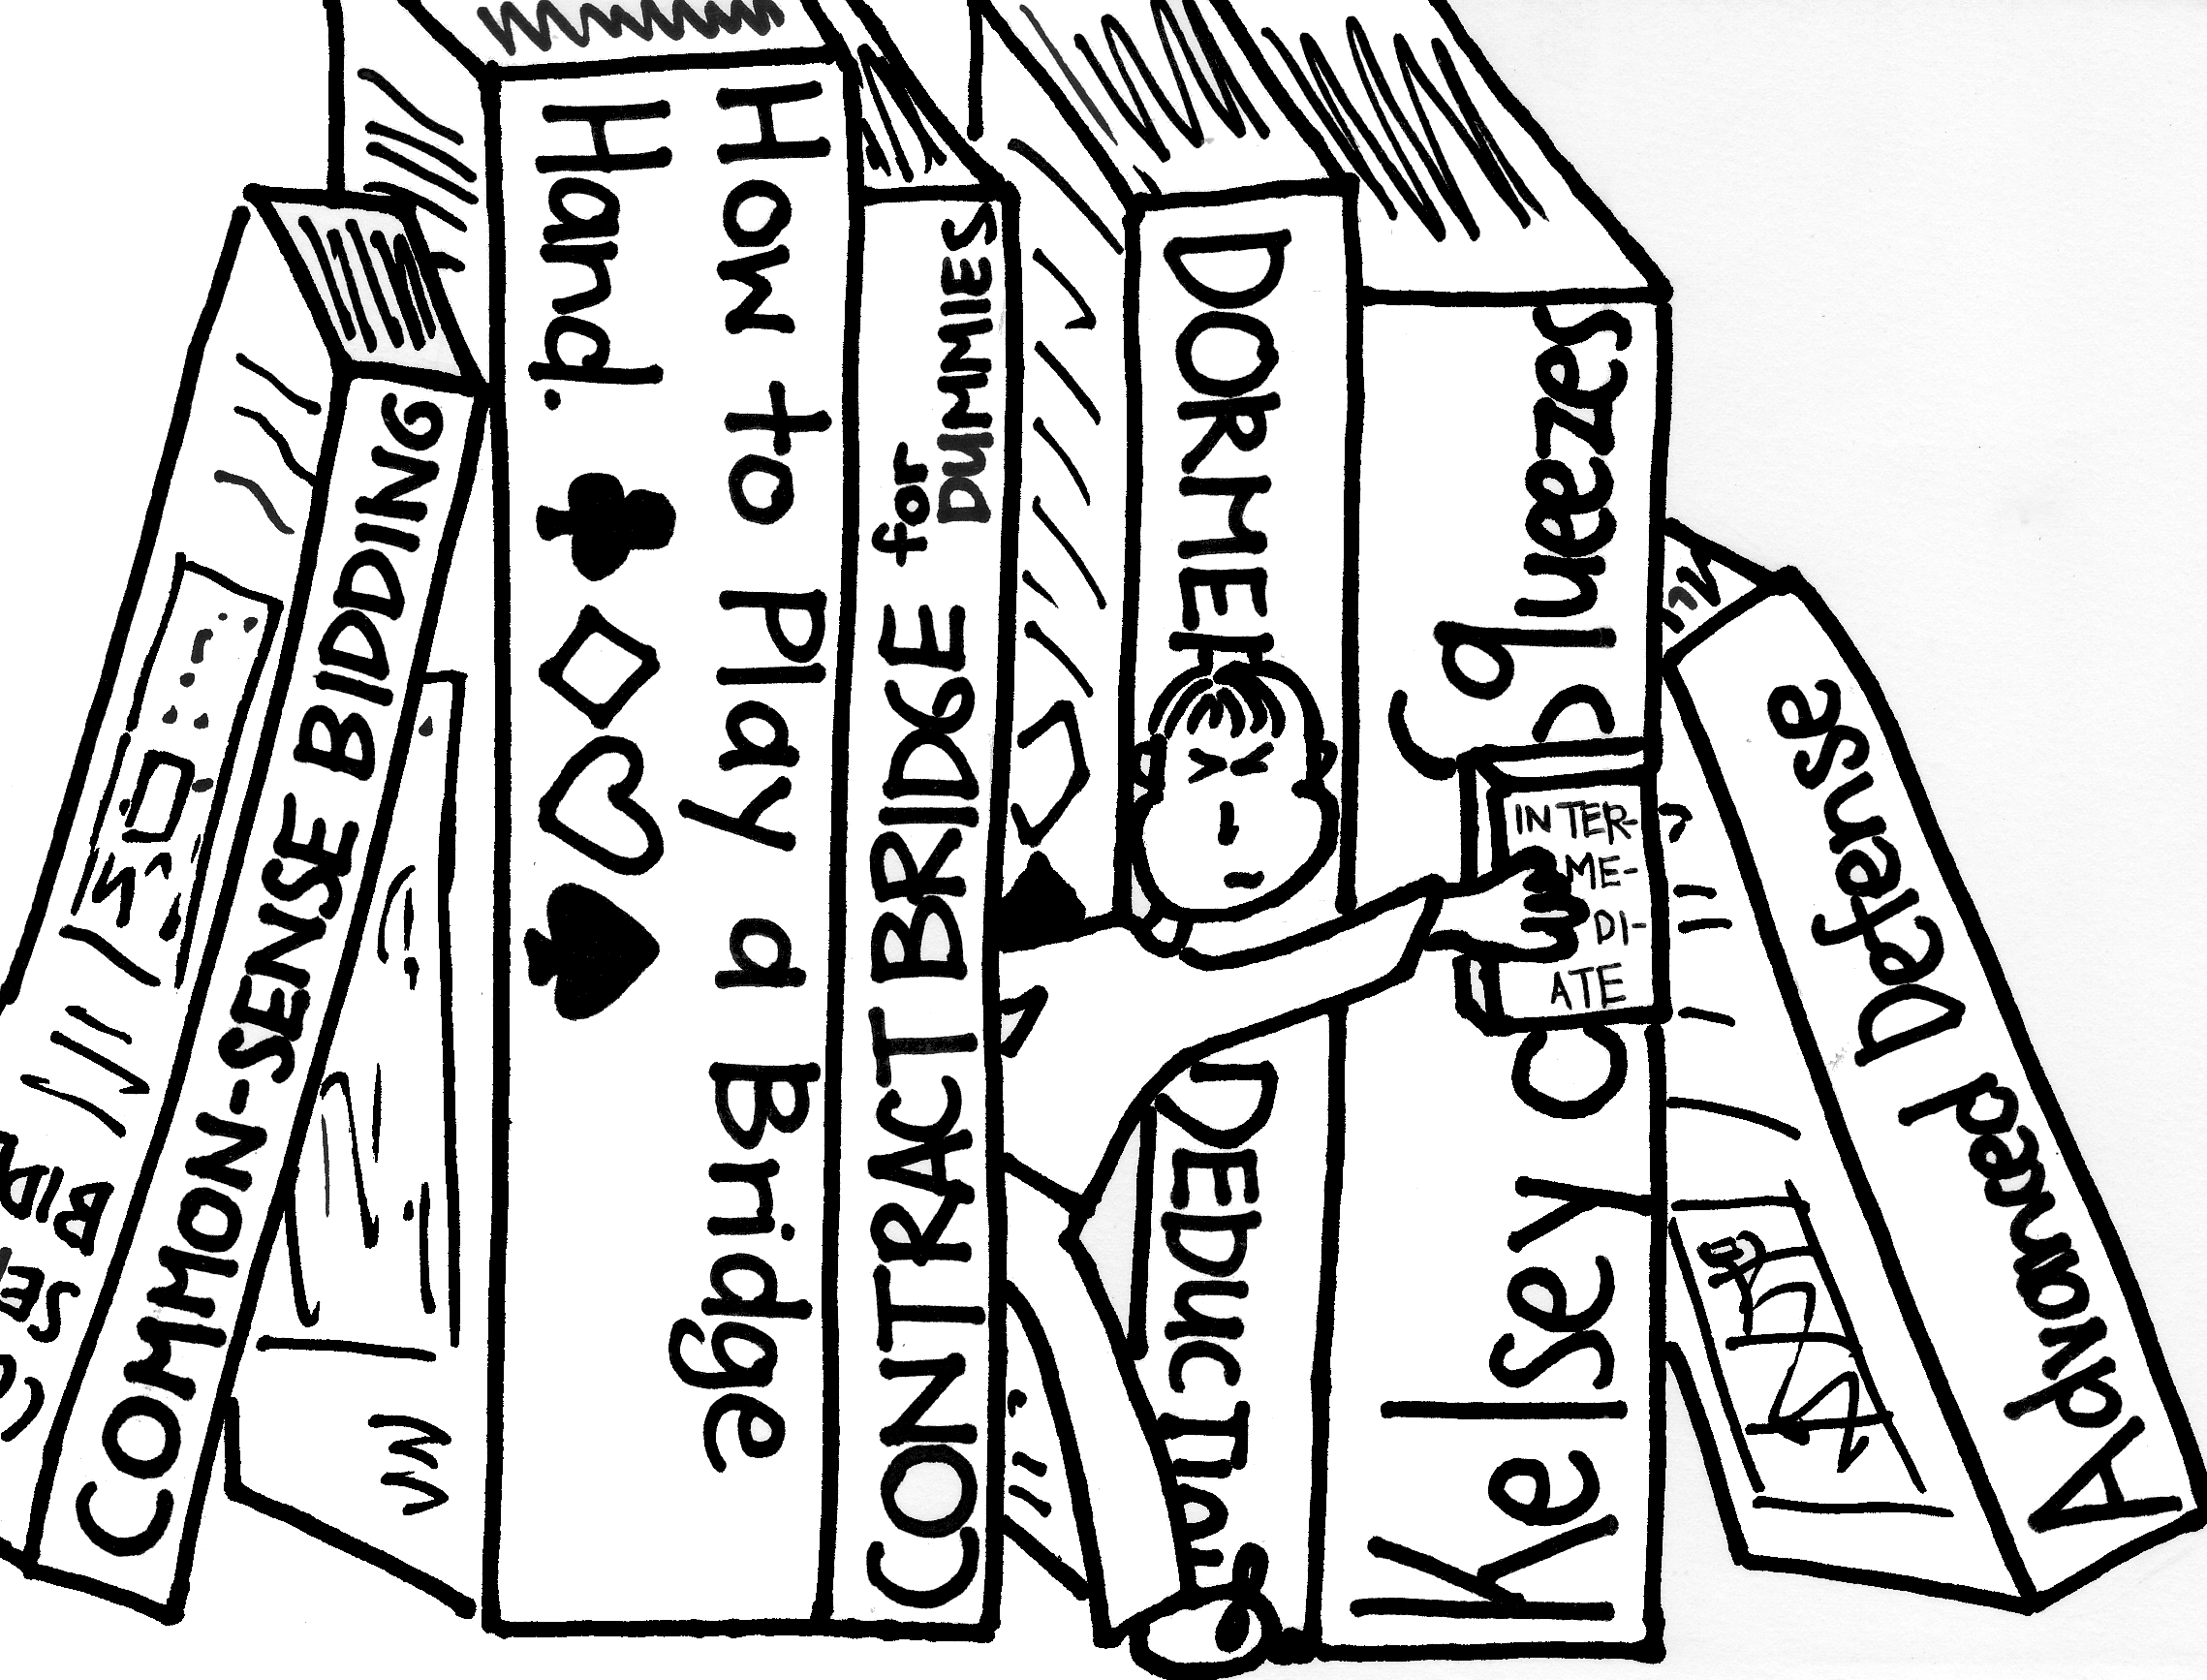 COMMON-SENSE BIDDING
How to Play a Bridge
Hand.
CONTRACT BRIDGE for
DUMMIES
DORMER
DEDUCTIONS
Kelsey on Squeezes
INTER-
ME-
DI-
ATE
Advanced Defense